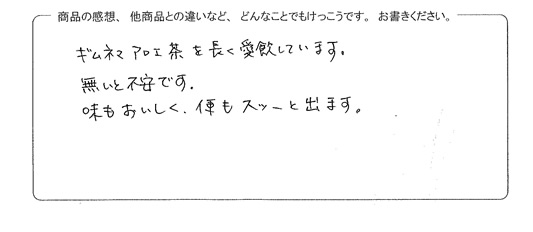 商品の感想、他商品との違いなど、どんなことでもけっこうです。お書きください。
ギムネマ アロエ茶を長く愛飲しています。
無いと不安です.
味もおいしく、便もスッーと出ます。